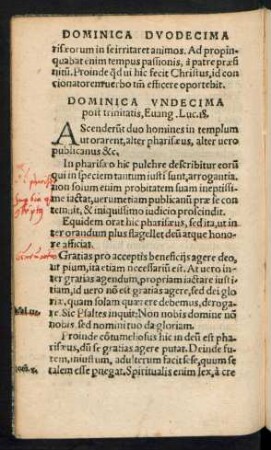 DOMINICA DVODECIMA
risęorum in se irritaret animos. Ad propin
quabat enim tempus passionis, à patre præsti
nitũ. Proinde qd ui hic fecit Christus, id con
cionatorem uerbo tm̃ efficere oportebit.
DOMINICA VNDECIMA
post trinitatis, Euang. Lucis.
ASCenderũt duo homines in templum
ut orarent, alter pharisæus, alter uero
publicanus &c.
In pharisæo hic pulchre describitur eorũ
qui in speciem tantum iusti sunt, arrogantia.
non solum enim probitatem suam ineptissi
me iactat, uerumetiam publicanũ præ se con
temnit, & iniquissimo iudicio proscindit.
Equidem orat hic pharisæus, sed ita, ut in
ter orandum plus flagellet deũ atque hono
re afficiat.
Gratias pro acceptis beneficijs agere deo,
ut pium, ita etiam necessariũ est. At uero in
ter gratias agendum, propriam iactare iusti
tiam, id uero nõ est gratias agere, sed dei glo
riæ, quam solam quærere debemus, deroga-
re. Sic Psaltes inquit: Non nobis domine nõ
nobis, sed nomini tuo da gloriam.
Proinde cõtumeliosus hic in deũ est pha
risæus, dũ se gratias agere putat. Deinde fu
tem, iniustum, adulterum facit sese, quum se
talem esse negat. Spiritualis enim lex, à cre